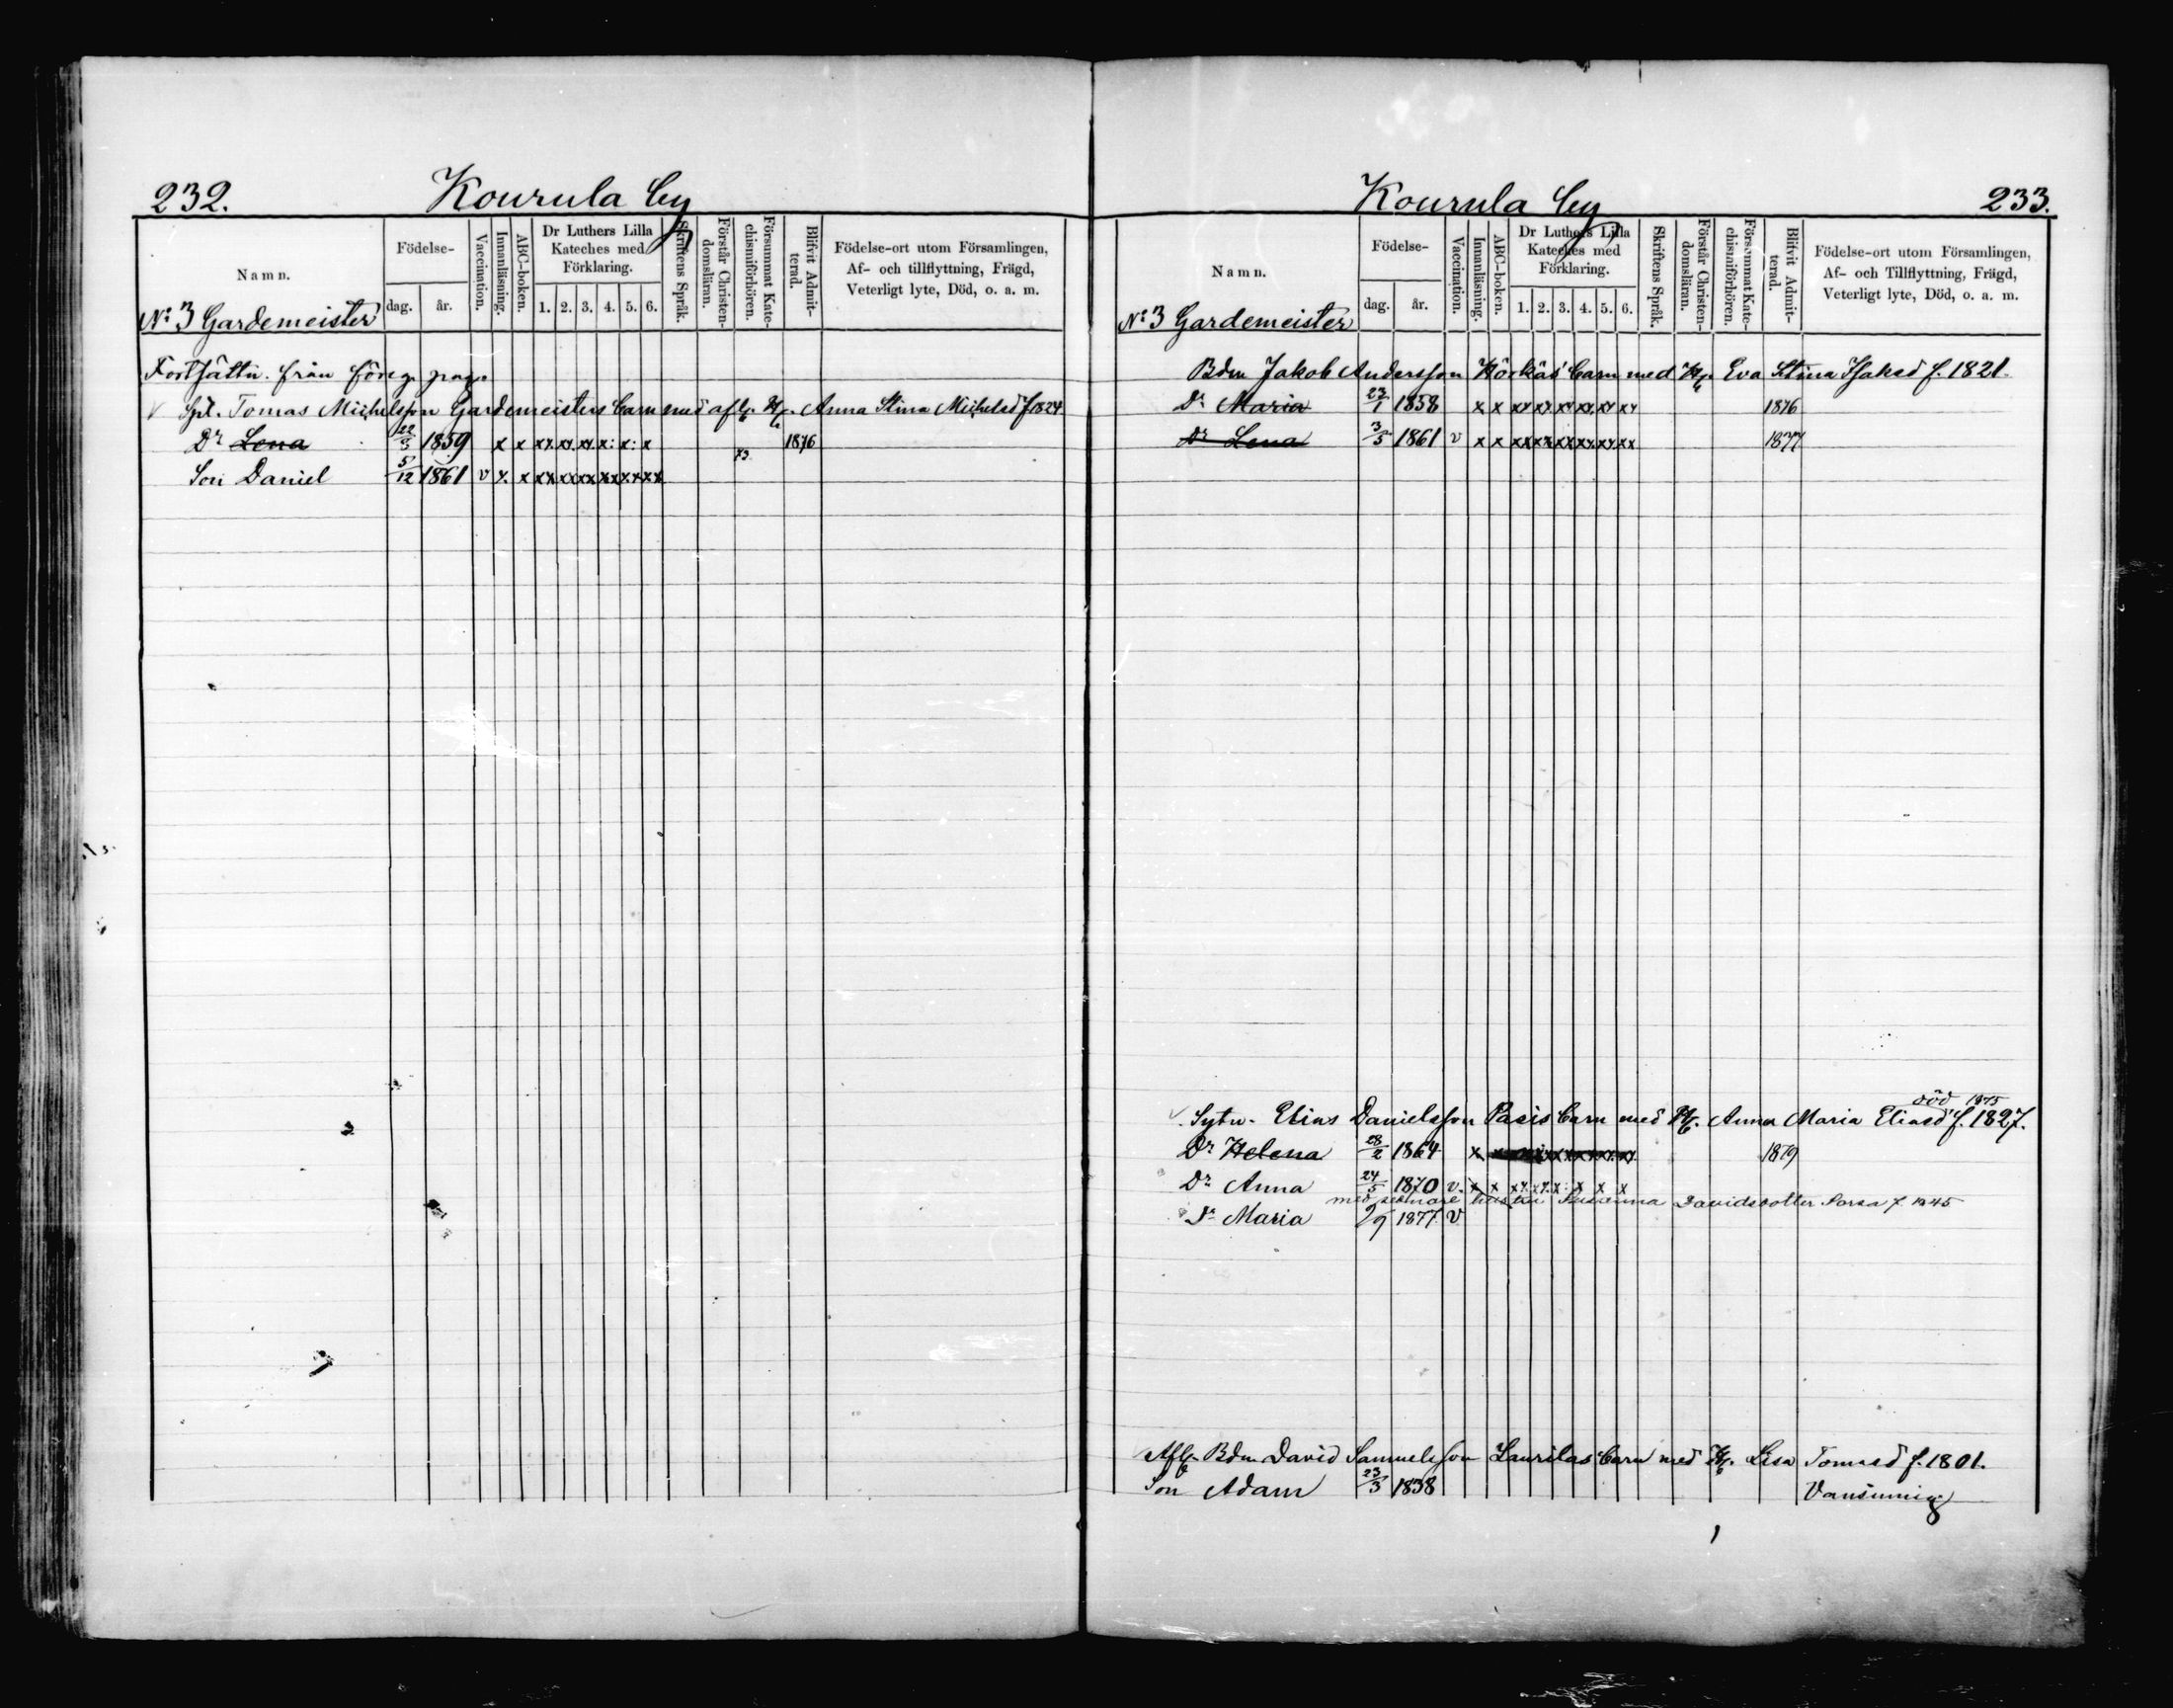 232.
Kourula by
Namn.
Födelse-
dag.
år.
Vaccination.
Innanläsning.
ABC-boken.
Dr Luthers Lilla
Kateches med
Förklaring.
1. 2. 3. 4. 5. 6.
Skriftens Språk.
Förstår Christen-
domsläran.
Försummat Kate-
chismiförhören.
Blifvit Admit-
terad.
Födelse-ort utom Församlingen,
Af- och tillflyttning, Frägd,
Veterligt lyte, Död, o. a. m.
No 3 Gardemeister
Fortsättn. från föreg. pag.
v Spl. Tomas Michelsson Gardemeisters barn med afl. H. Anna Stina Michelsd f 1824
Dr Lena 22/3 1859 x x xx. xx. xx. x: x: x 1876
Son Daniel 5/12 1861 v x. x xx xx xx xx xx xx 73
Kourula by
233.
Namn.
Födelse-
dag.
år.
Vaccination.
Innanläsning.
ABC-boken.
Dr Luthers Lilla
Kateches med
Förklaring.
1. 2. 3. 4. 5. 6.
Skriftens Språk.
Förstår Christen-
domsläran.
Försummat Kate-
chismiförhören.
Blifvit Admit-
terad.
Födelse-ort utom Församlingen,
Af- och Tillflyttning, Frägd,
Veterligt lyte, Död, o. a. m.
No 3 Gardemeister
Bdm Jakob Andersson Hörkäs barn med H. Eva Stina Isaksd f. 1821.
Dr Maria 23/1 1858 x x xx xx xx xx xx xx 1876
Dr Lena 3/5 1861 v x x xx xx xx xx xx xx 1877
död 1875
v. Sytn. Elias Danielsson Pasis barn med H. Anna Maria Eliasd f. 1827.
Dr Helena 28/2 1864 x 1879
Dr Anna 24/5 1870 v. x x xx. xx. x: x x x
med senare hustru Susanna Davidsdotter f. 1845
Dr Maria 2/9 1877 v
Afl. Bdm David Samuelsson Laurilas barn med H. Lisa Tomasd f. 1801.
Son Adam 23/3 1838 Vansinnig